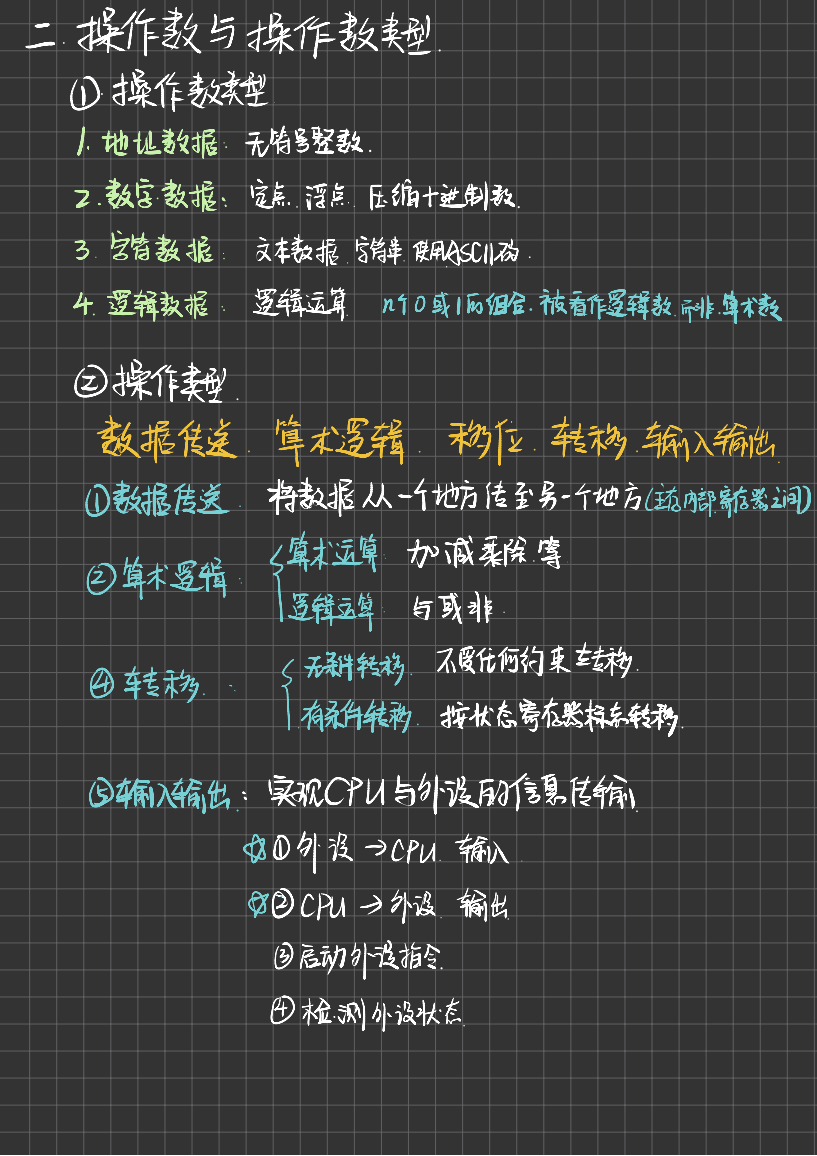 二. 操作数与操作数类型.
① 操作数类型
1. 地址数据: 无符号整数.
2. 数字数据: 定点. 浮点. 压缩十进制数.
3. 字符数据: 文本数据. 字符串. 使用ASCII码.
4. 逻辑数据: 逻辑运算 n个0或1的组合. 被看作逻辑数. 而非. 算术数
② 操作类型.
数据传送. 算术逻辑. 移位. 转移. 输入输出.
①数据传送. 将数据从一个地方传至另一个地方(主存.内部.寄存器之间)
②算术逻辑
算术运算 加减乘除等
逻辑运算 与或非.
④转移.
无条件转移. 不受任何约束 转移.
有条件转移. 按状态寄存器标志转移.
⑤输入输出: 实现CPU与外设的信息传输.
☆①外设→CPU. 输入
☆②CPU→外设. 输出
③启动外设指令.
④检测外设状态.